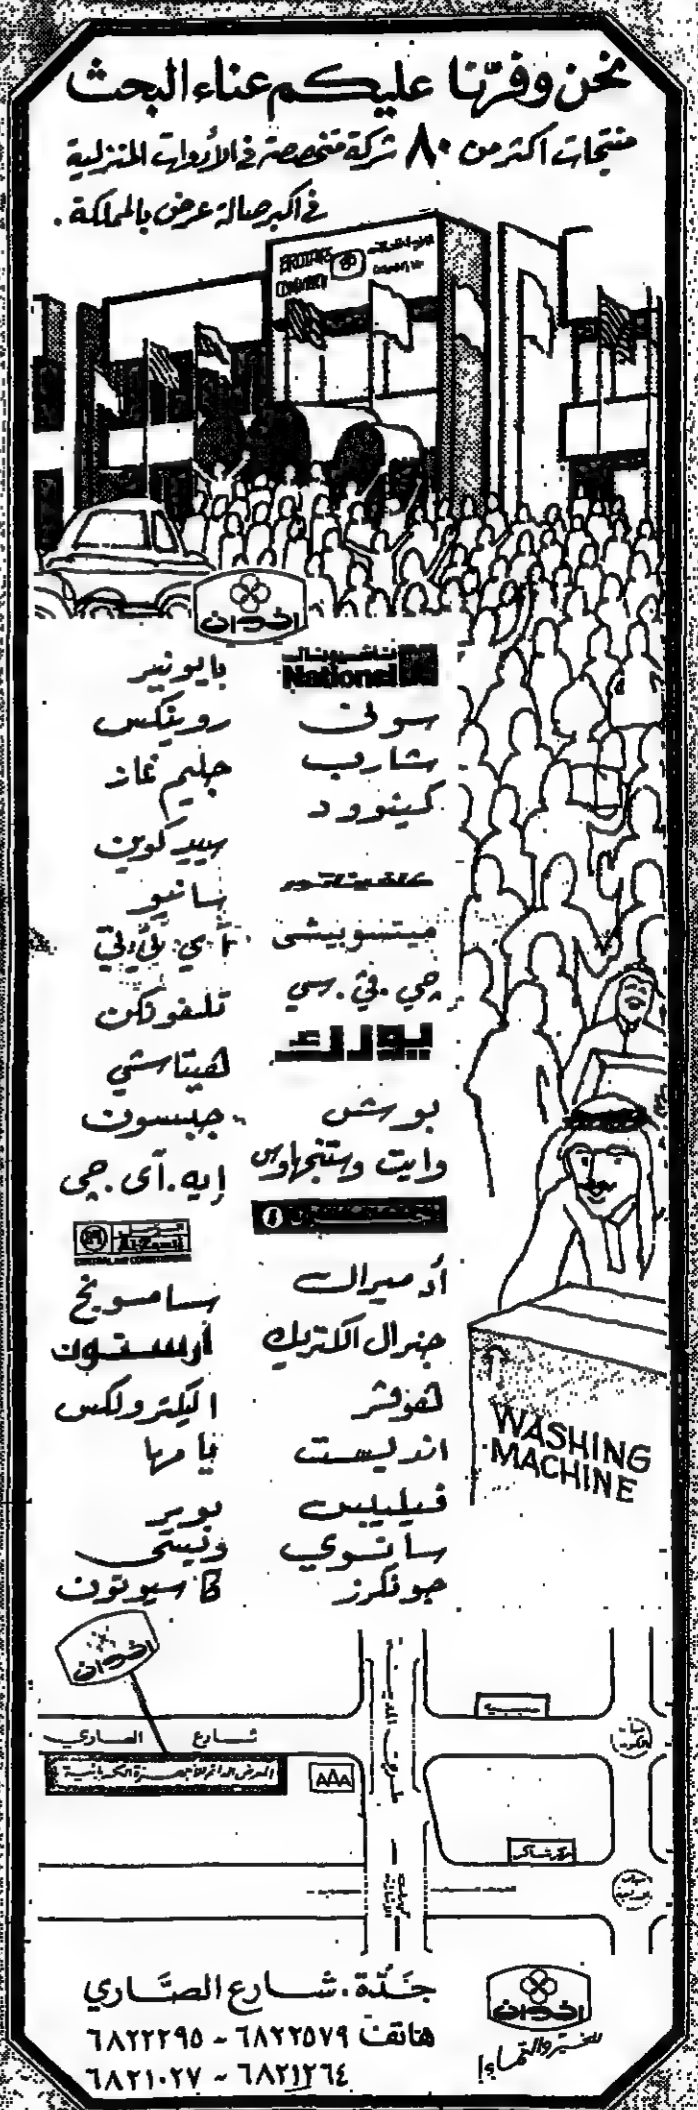 نحن وفرّنا عليكم عناء البحث
منتجات اكثر من ٨٠ شركة متخصصة في الأدوات المنزلية
في اكبر صالة عرض بالمملكة .
BROTHERS
COMPANY
اخوان
ناشيونال
National
سوني
شارب
كينوود
كلفينيتور
ميتسوبيشي
جي . في . سي
يورك
بوش
وايت وستنجهاوس
أدميرال
جنرال الكتريك
هوفر
اندليست
فيليبس
سانسوي
جونكرز
بايونير
روينكس
جليم غاز
سبيد كوين
سانيو
تلفونكن
هيتاشي
جبسون
إيه . آي . جي
الزامل
Al-Zamil
سامسونج
أرستون
اليكترولكس
يامها
بوير
ونيتى
WASHING
MACHINE
اخوان
شارع الصاري
المعرض الدائم للأجهزة الكهربائية
AAA
طريق المدينة
مركز شاكر
اخوان
جَدّة . شارع الصَّاري
هاتف ٦٨٢٢٥٧٩ - ٦٨٢٢٢٩٥
٦٨٢١٢٦٤ - ٦٨٢١٠٢٧